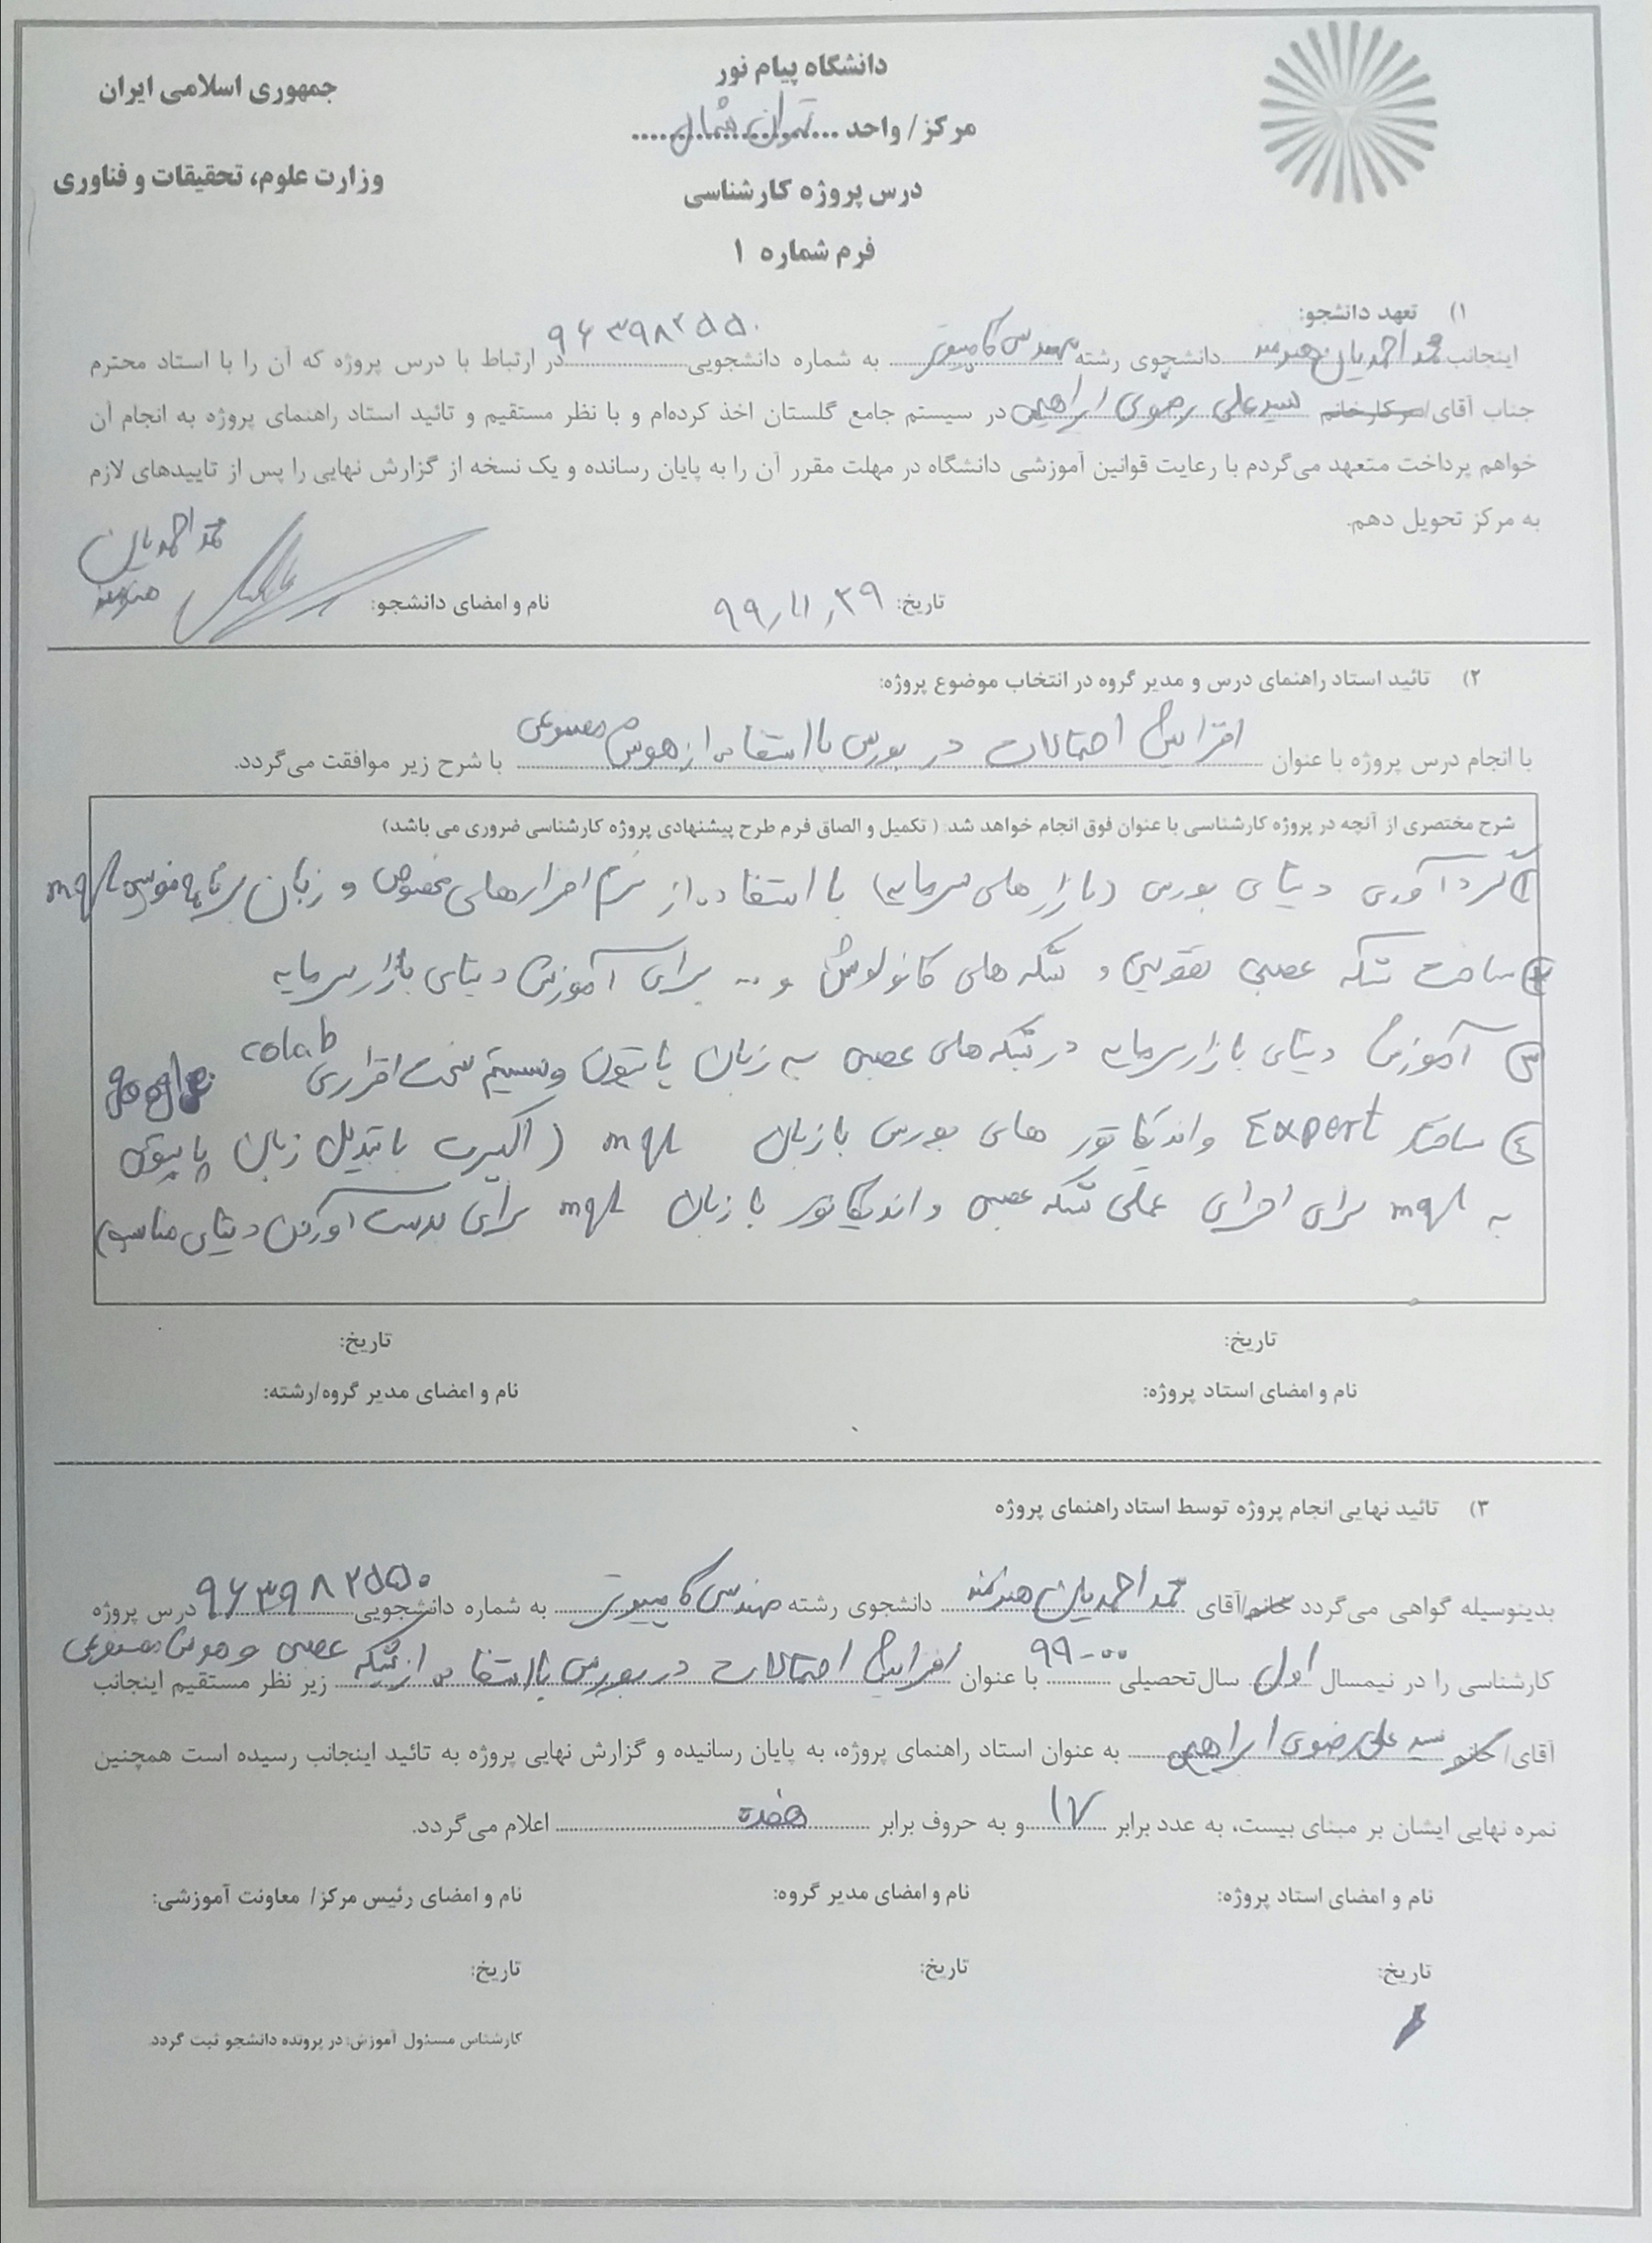 جمهوری اسلامی ایران
وزارت علوم، تحقیقات و فناوری
دانشگاه پیام نور
مرکز / واحد ... تهران شمال ...
درس پروژه کارشناسی
فرم شماره ۱
۱) تعهد دانشجو:
اینجانب محمد احمدیان هنرمند دانشجوی رشته مهندسی کامپیوتر به شماره دانشجویی ۹۶۳۹۸۲۵۵۰ در ارتباط با درس پروژه که آن را با استاد محترم
جناب آقای/سرکار خانم سید علی رضوی ابراهیمی در سیستم جامع گلستان اخذ کرده‌ام و با نظر مستقیم و تائید استاد راهنمای پروژه به انجام آن
خواهم پرداخت متعهد می‌گردم با رعایت قوانین آموزشی دانشگاه در مهلت مقرر آن را به پایان رسانده و یک نسخه از گزارش نهایی را پس از تاییدهای لازم
به مرکز تحویل دهم.
تاریخ: ۹۹,۱۱,۲۹ نام و امضای دانشجو: محمد احمدیان
هنرمند
۲) تائید استاد راهنمای درس و مدیر گروه در انتخاب موضوع پروژه:
با انجام درس پروژه با عنوان افزایش احتمالات در بورس با استفاده از هوش مصنوعی با شرح زیر موافقت می‌گردد.
شرح مختصری از آنچه در پروژه کارشناسی با عنوان فوق انجام خواهد شد: ( تکمیل و الصاق فرم طرح پیشنهادی پروژه کارشناسی ضروری می باشد)
۱ گردآوری دیتای بورس (بازارهای سرمایه) با استفاده از نرم افزارهای مخصوص و زبان برنامه نویسی mql
۲ ساخت شبکه عصبی تقویتی و شبکه های کانولوشن و ... برای آموزش دیتای بازار سرمایه
۳ آموزش دیتای بازار سرمایه در شبکه های عصبی به زبان پایتون و سیستم سخت افزاری google colab
۴ ساخت Expert و اندیکاتور های بورس با زبان mql (اکسپرت با تبدیل زبان پایتون
به mql برای اجرای عملی شبکه عصبی و اندیکاتور با زبان mql برای بدست آوردن دیتای مناسب)
تاریخ: تاریخ:
نام و امضای استاد پروژه: نام و امضای مدیر گروه/رشته:
۳) تائید نهایی انجام پروژه توسط استاد راهنمای پروژه
بدینوسیله گواهی می‌گردد خانم/آقای محمد احمدیان هنرمند دانشجوی رشته مهندسی کامپیوتر به شماره دانشجویی ۹۶۳۹۸۲۵۵۰ درس پروژه
کارشناسی را در نیمسال اول سال تحصیلی ۹۹-۰۰ با عنوان افزایش احتمالات در بورس با استفاده از شبکه عصبی و هوش مصنوعی زیر نظر مستقیم اینجانب
آقای/ خانم سید علی رضوی ابراهیمی به عنوان استاد راهنمای پروژه، به پایان رسانیده و گزارش نهایی پروژه به تائید اینجانب رسیده است همچنین
نمره نهایی ایشان بر مبنای بیست، به عدد برابر ۱۷ و به حروف برابر هفده اعلام می‌گردد.
نام و امضای استاد پروژه: نام و امضای مدیر گروه: نام و امضای رئیس مرکز/ معاونت آموزشی:
تاریخ: تاریخ: تاریخ:
کارشناس مسئول آموزش: در پرونده دانشجو ثبت گردد.